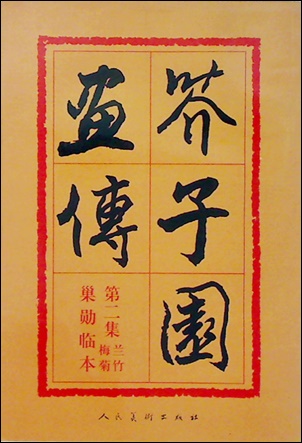 芥子園
畫傳
第二集 兰竹
梅菊
巢勋临本
人民美術出版社